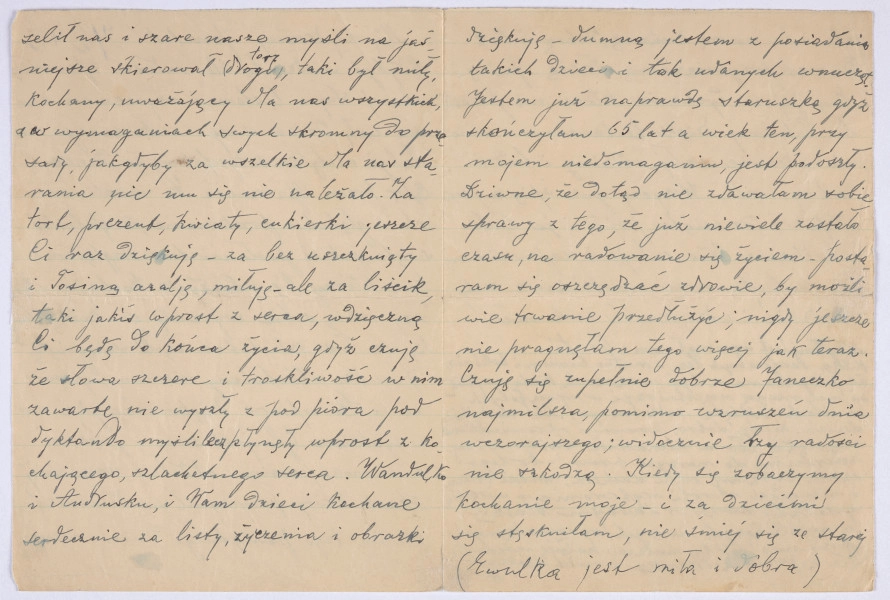 selił nas i szare nasze myśli na jaś-
niejsze skierował tory
Drogi, taki był miły,
kochany, uważający dla nas wszystkich,
a w wymaganiach swych skromny do prze
sady, jakgdyby za wszelkie dla nas sta-
rania nic mu się nie należało. Za
tort, prezent, kwiaty, cukierki jeszcze
Ci raz dziękuję – za bez uszczknięty
i Tosiną azalję, miłują – ale za liścik,
taki jakiś wprost z serca, wdzięczną
Ci będę do końca życia, gdyż czuję
że słowa szczere i troskliwość w nim
zawarte, nie wyszły z pod pióra pod
dyktando myśli lecz płynęły wprost z ko-
chającego, szlachetnego serca. Wandulko
i Andrusku, i Wam dzieci kochane
serdecznie za listy, życzenia i obrazki
dziękuję – dumną jestem z posiadania
takich dzieci i tak udanych wnucząt.
Jestem już naprawdę staruszką gdyż
skończyłam 65 lat a wiek ten, przy
mojem niedomaganiu, jest podeszły.
Dziwne, że dotąd nie zdawałam sobie
sprawy z tego, że już niewiele zostało
czasu, na radowanie się życiem – posta
ram się oszczędzać zdrowie, by możli
wie trwanie przedłużyć; nigdy jeszcze
nie pragnęłam tego więcej jak teraz.
Czuję się zupełnie dobrze Janeczko
najmilsza, pomimo wzruszeń dnia
wczorajszego; widocznie łzy radości
nie szkodzą. Kiedy się zobaczymy
kochanie moje – i za dziećmi
się stęskniłam, nie śmiej się ze starej
(Ewulka jest miła i dobra)